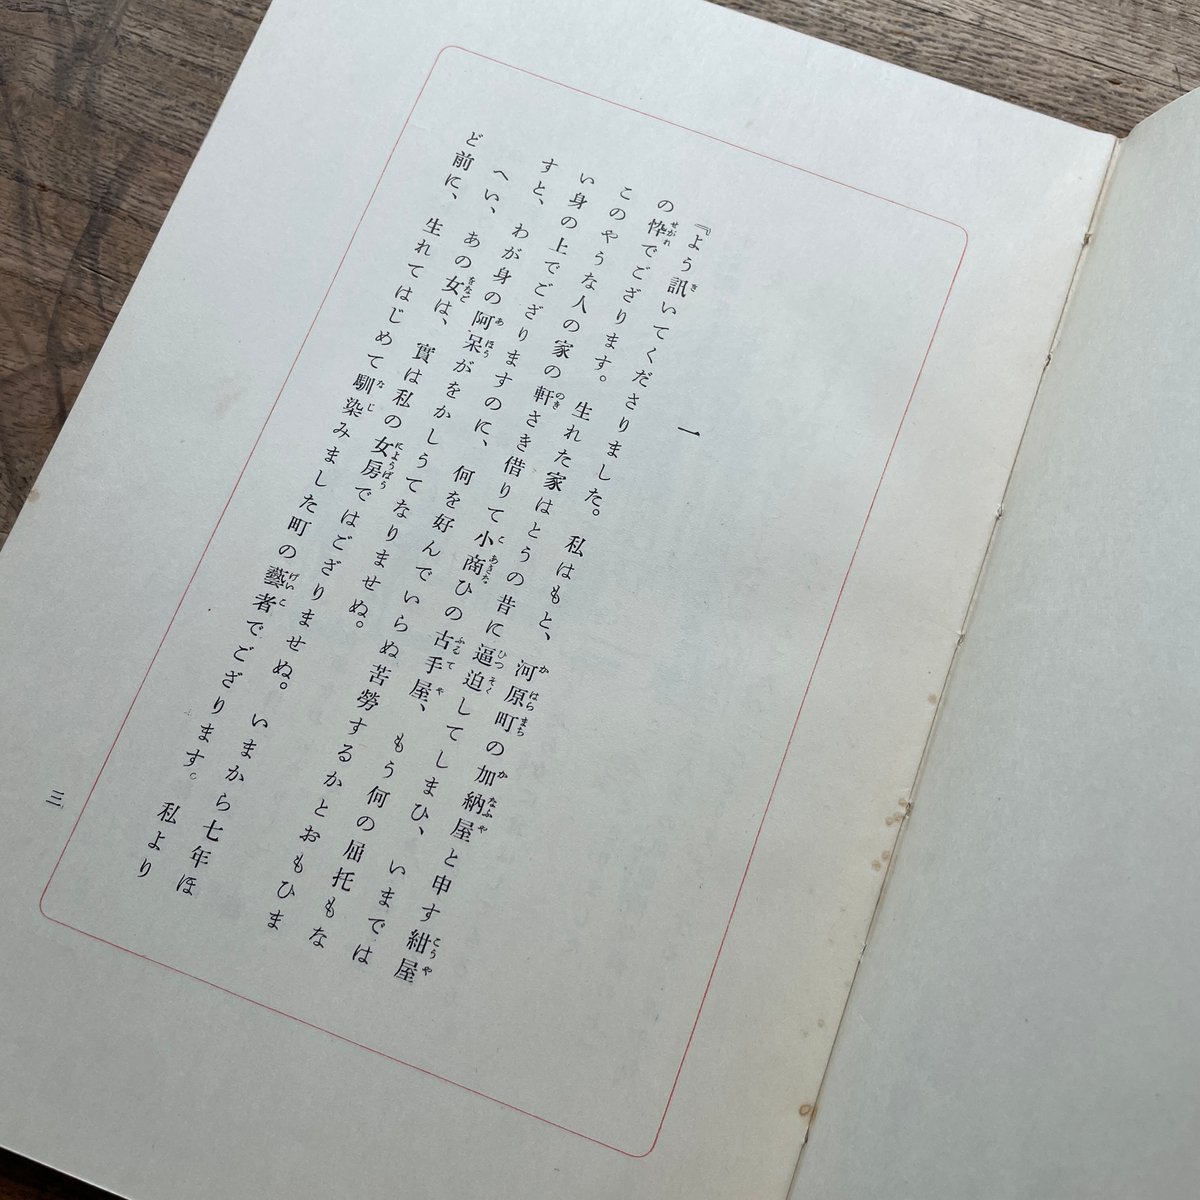 一
『よう訊いてくださりました。私はもと、河原町の加納屋と申す紺屋
の悴でござります。生れた家はとうの昔に逼迫してしまひ、いまでは
このやうな人の家の軒さき借りて小商ひの古手屋、もう何の屈托もな
い身の上でござりますのに、何を好んでいらぬ苦勞するかとおもひま
すと、わが身の阿呆がをかしうてなりませぬ。
へい、あの女は、實は私の女房ではござりませぬ。いまから七年ほ
ど前に、生れてはじめて馴染みました町の藝者でござります。私より
三